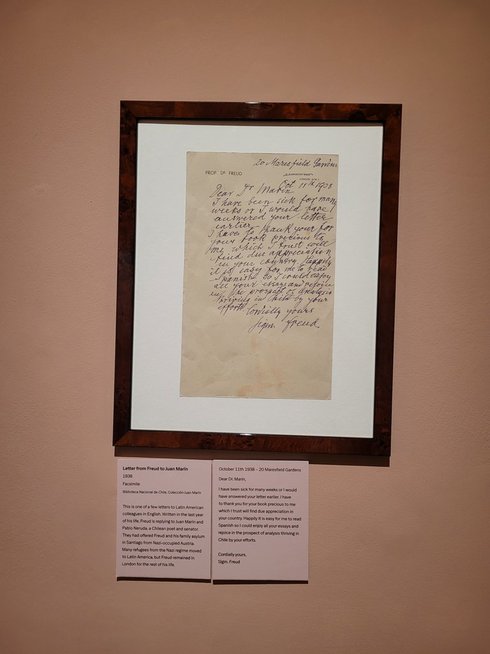 20 Maresfield Gardens
PROF. DR. FREUD
Oct 11th 1938
Dear Dr Marin
I have been sick for many
weeks or I would have
answered your letter
earlier.
I have to thank you for
your book precious to
me which I trust will
find due appreciation
in your country. Happily
it is easy for me to read
Spanish so I could enjoy
all your essays and rejoice
in the prospect of analysis
thriving in Chile by your
efforts. Cordially yours
Sigm. Freud.
Letter from Freud to Juan Marín
1938
Facsimile
Biblioteca Nacional de Chile, Colección Juan Marín
This is one of a few letters to Latin American
colleagues in English. Written in the last year
of his life, Freud is replying to Juan Marín and
Pablo Neruda, a Chilean poet and senator.
They had offered Freud and his family asylum
in Santiago from Nazi-occupied Austria.
Many refugees from the Nazi regime moved
to Latin America, but Freud remained in
London for the rest of his life.
October 11th 1938 – 20 Maresfield Gardens
Dear Dr. Marin,
I have been sick for many weeks or I would
have answered your letter earlier. I have
to thank you for your book precious to me
which I trust will find due appreciation in
your country. Happily it is easy for me to read
Spanish so I could enjoy all your essays and
rejoice in the prospect of analysis thriving in
Chile by your efforts.
Cordially yours
Sigm. Freud